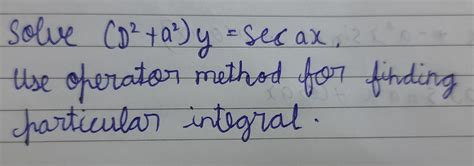 Solve (D²+a²)y = Sec ax.
Use operator method for finding
particular integral.